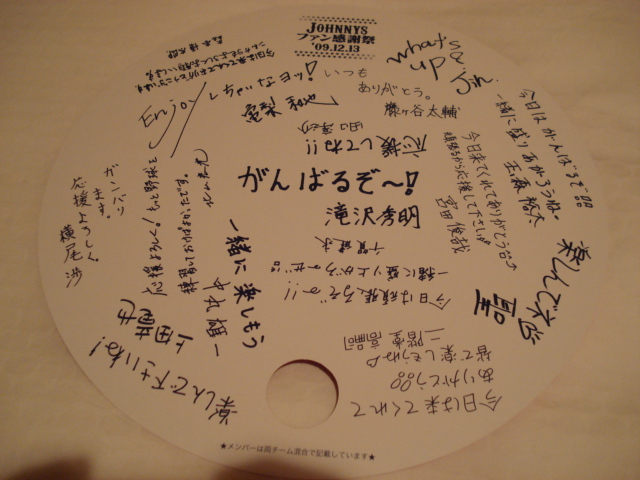 JOHNNYS
ファン感謝祭
'09.12.13
what's
up
Jin.
いつも
ありがとう。
藤ヶ谷太輔
Enjoy
しちゃいなヨッ!
宮梨 和也
田口 淳之介
応援してね!!
がんばるぞ〜!
滝沢秀明
千賀健永
一緒に盛り上がろーぜ!!
今日は頑張るぞー!!
今日は がんばるぞ!!
一緒に盛りあがろうね。
玉森裕太
今日来てくれてありがとう
気持ちから応援して下さい
宮田 俊哉
楽しんで
聖
ガンバリ
ます。
応援よろしく。
横尾 渉
応援よろしく!
一緒に 楽しもう
中丸雄一
上田竜也
楽しんで下さいね!
二階堂 高嗣
皆で楽しもうね
ありがとう
今日は来てくれて
★メンバーは両チーム混合で記載しています★